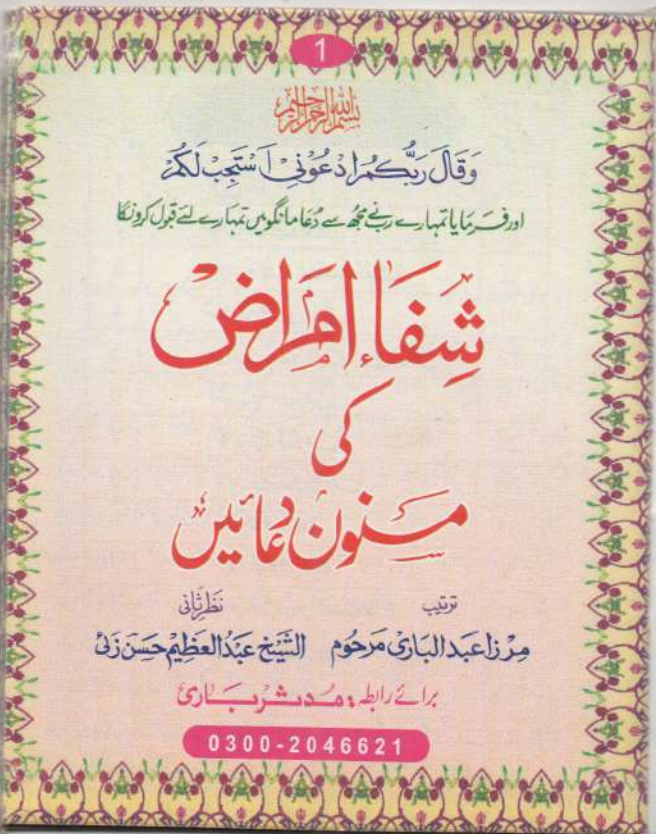 1
بسم الله الرحمن الرحيم
وَقَالَ رَبُّكُمُ ادْعُوْنِیْ اَسْتَجِبْ لَکُمْ
اور فرمایا تمہارے رب نے مجھ سے دُعا مانگو میں تمہارے لئے قبول کرونگا
شِفَاءِ امراض
کی
مسنون دعائیں
ترتیب نظرِثانی
مرزا عبدالباری مرحوم الشیخ عبدُالعظیم حسن زئی
برائے رابطہ: مدثر باری
0300-2046621